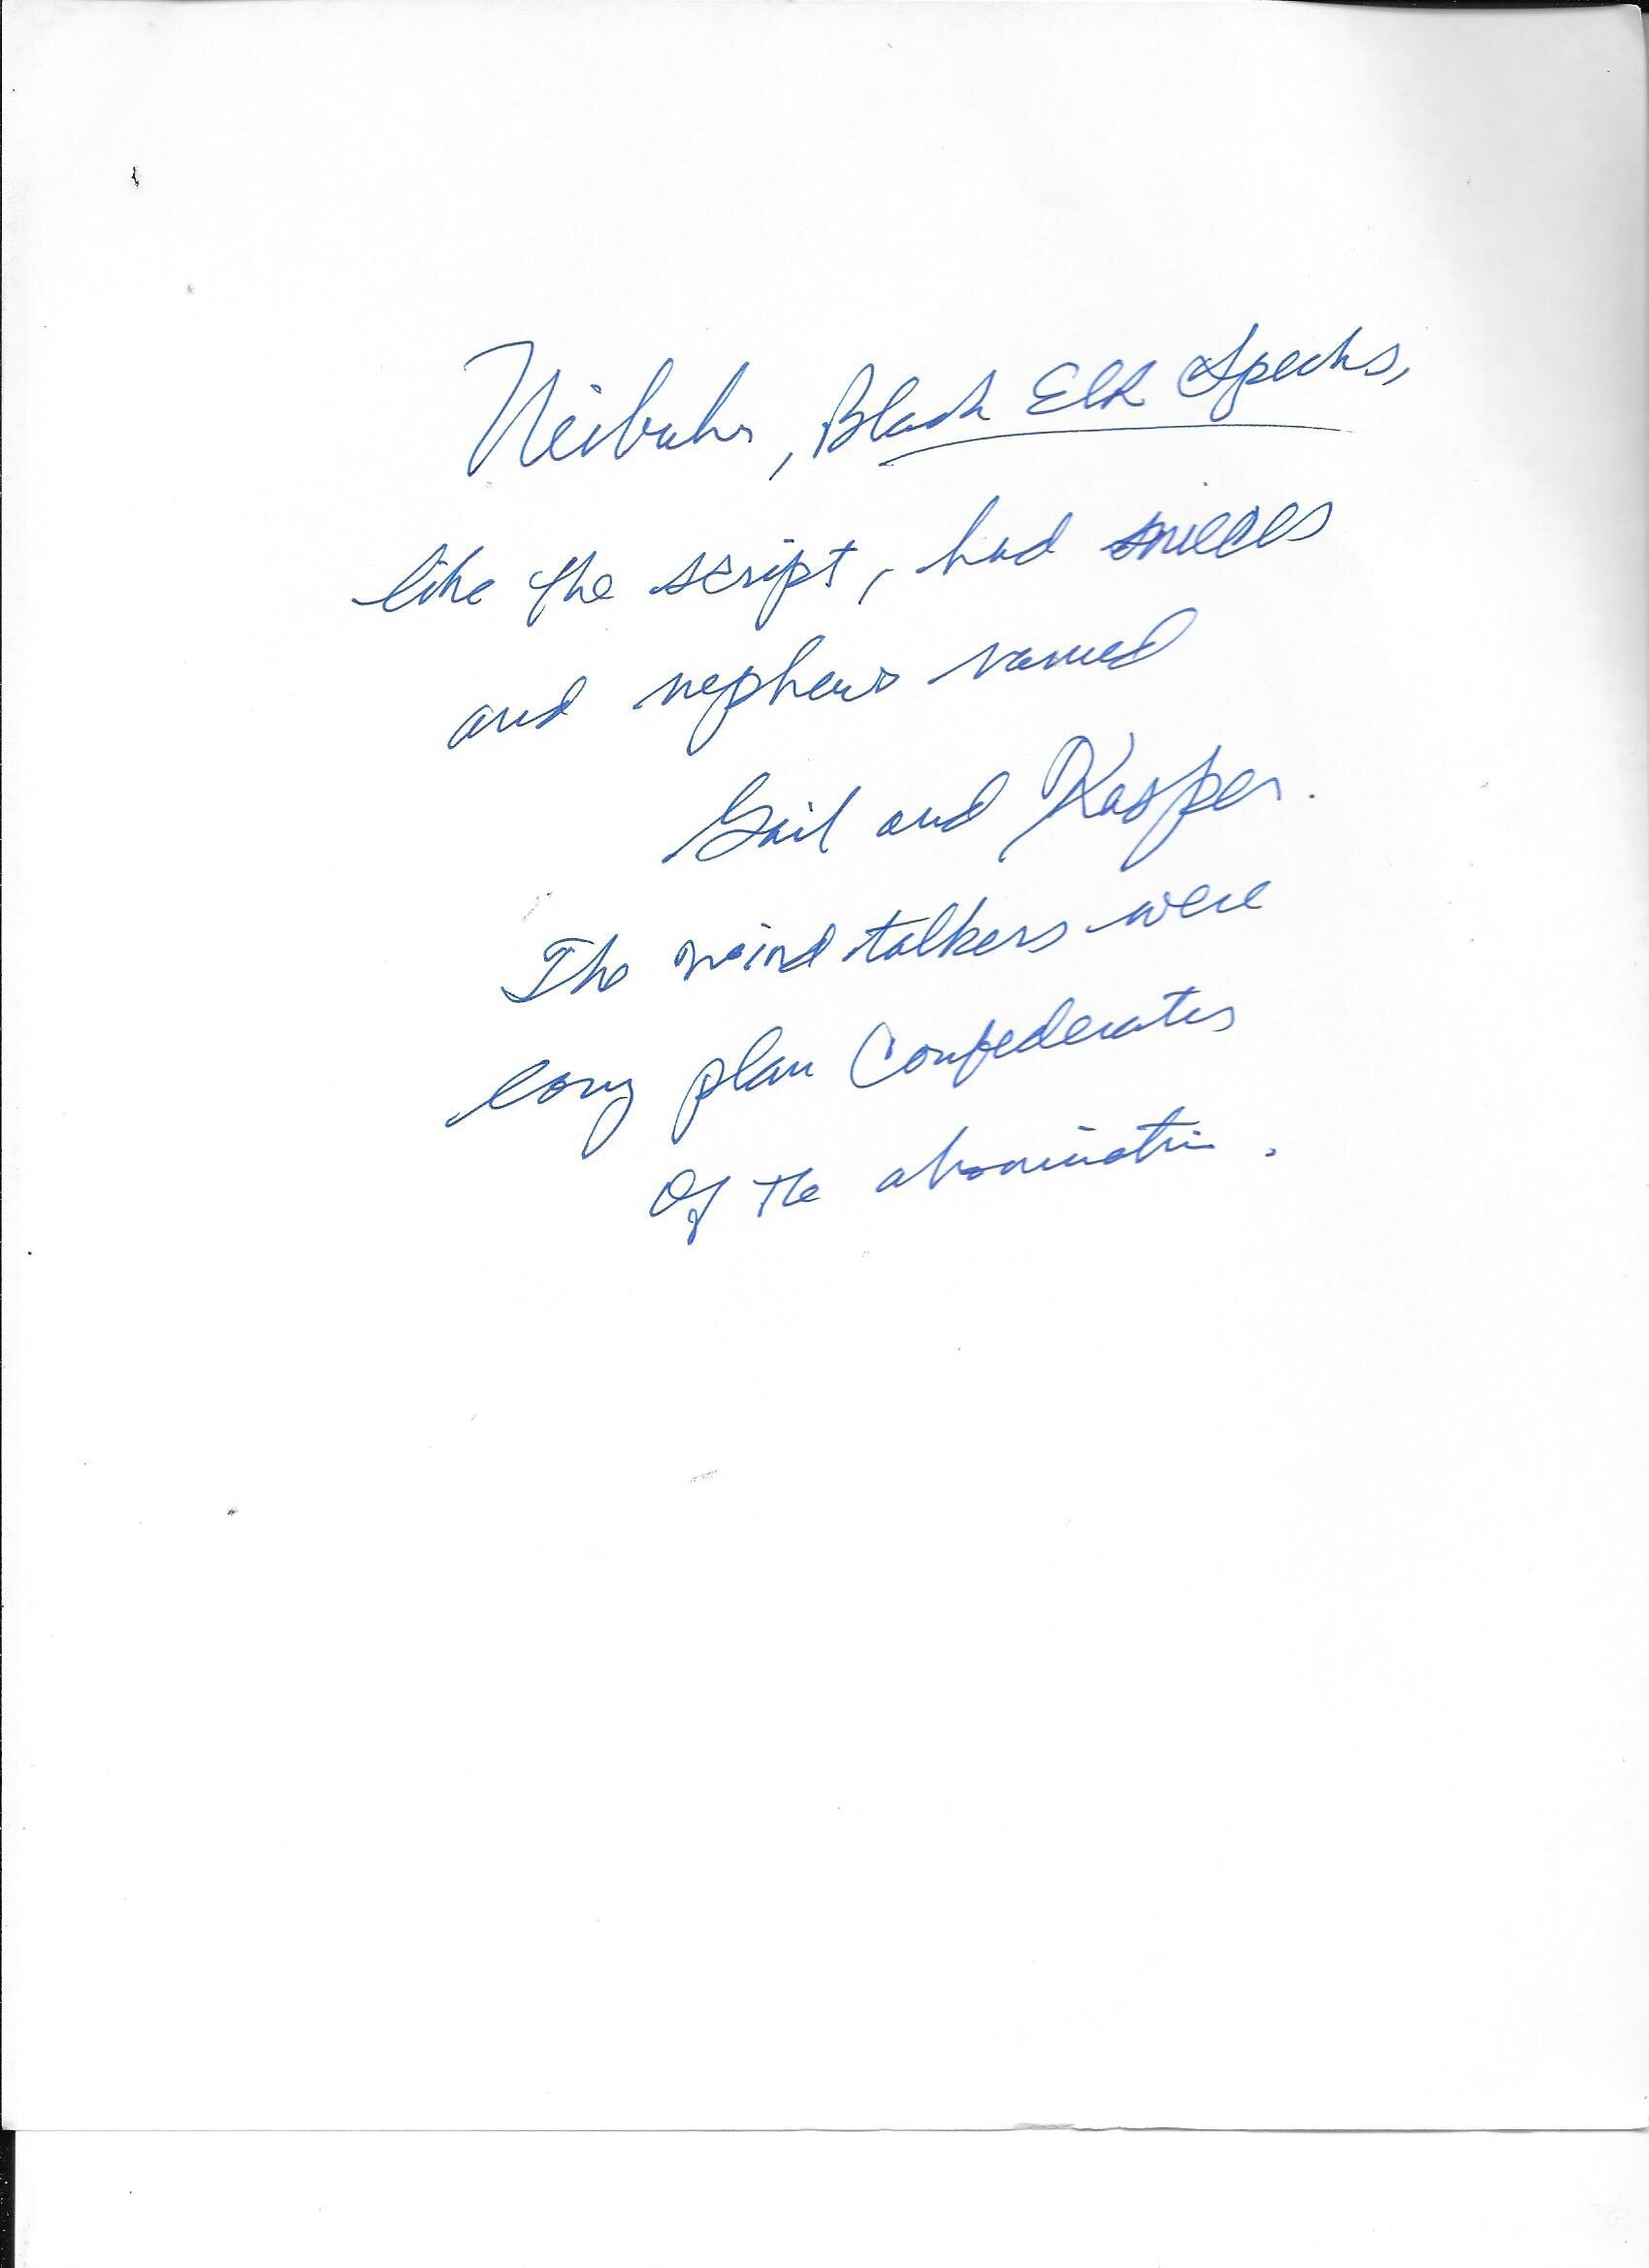 Neibuhr, Black Elk Speaks,
like the script, had nieces
and nephews named
Gail and Kasper.
The mind talkers were
long plan Confederates
Of the abomination.